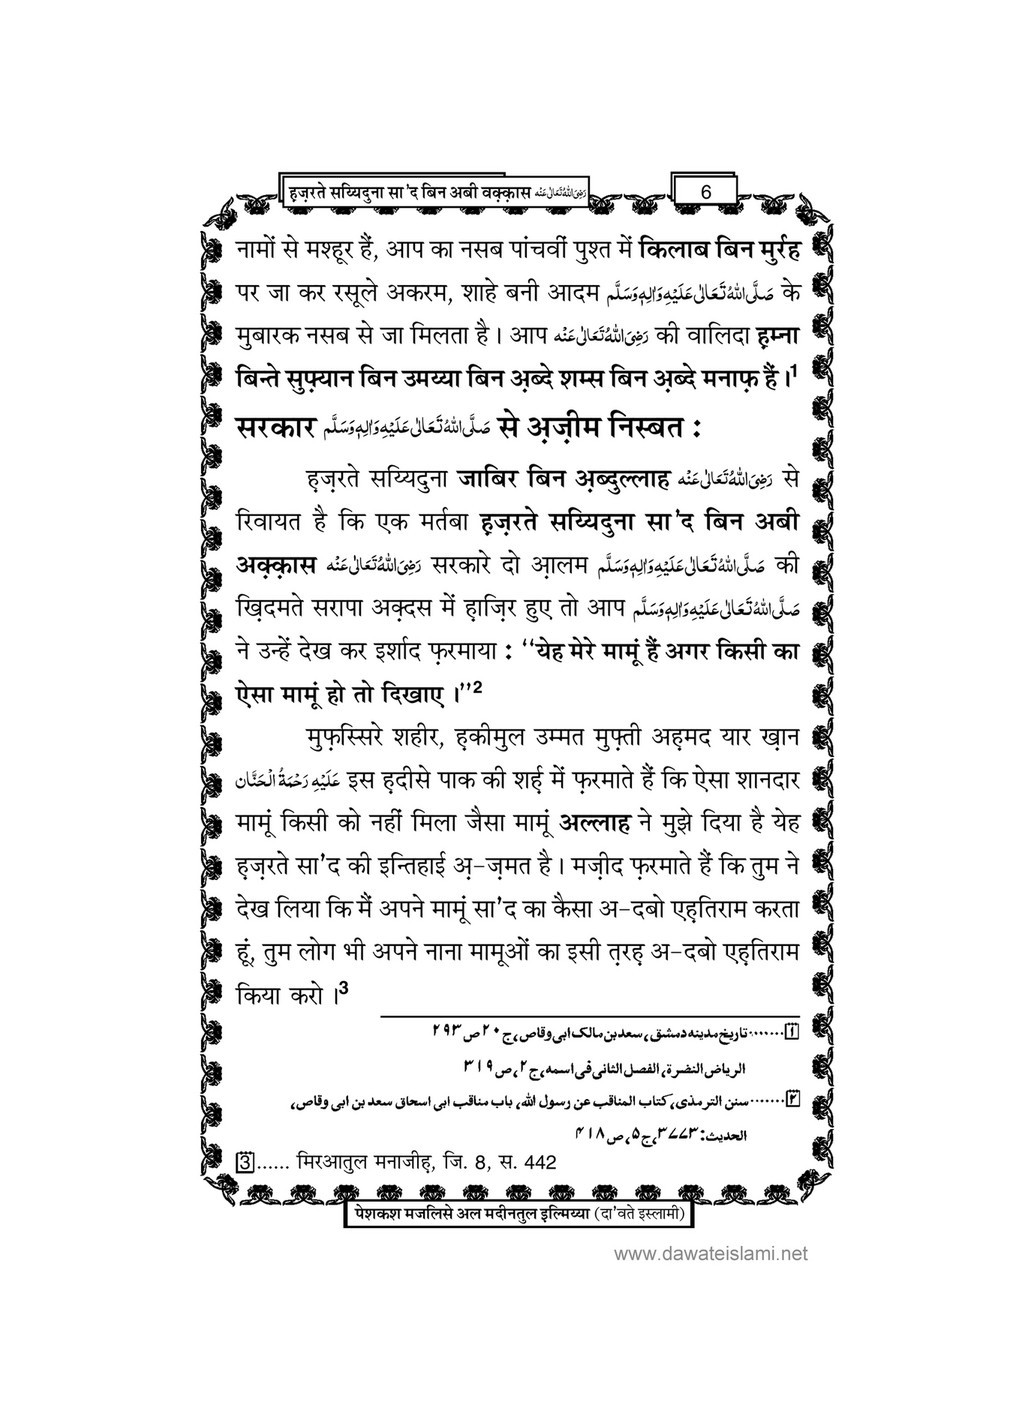 हज़रते सय्यिदुना सा'द बिन अबी वक़्क़ास رَضِیَ اللّٰهُ تَعَالٰی عَنْه
6
नामों से मश्हूर हैं, आप का नसब पांचवीं पुश्त में किलाब बिन मुर्रह
पर जा कर रसूले अकरम, शाहे बनी आदम صَلَّی اللّٰهُ تَعَالٰی عَلَیْهِ وَاٰلِهٖ وَسَلَّم के
मुबारक नसब से जा मिलता है। आप رَضِیَ اللّٰهُ تَعَالٰی عَنْه की वालिदा ह़म्ना
बिन्ते सुफ़्यान बिन उमय्या बिन अ़ब्दे शम्स बिन अ़ब्दे मनाफ़ हैं।1
सरकार صَلَّی اللّٰهُ تَعَالٰی عَلَیْهِ وَاٰلِهٖ وَسَلَّم से अ़ज़ीम निस्बत :
ह़ज़रते सय्यिदुना जाबिर बिन अ़ब्दुल्लाह رَضِیَ اللّٰهُ تَعَالٰی عَنْه से
रिवायत है कि एक मर्तबा ह़ज़रते सय्यिदुना सा'द बिन अबी
अक़्क़ास رَضِیَ اللّٰهُ تَعَالٰی عَنْه सरकारे दो आ़लम صَلَّی اللّٰهُ تَعَالٰی عَلَیْهِ وَاٰلِهٖ وَسَلَّم की
ख़िदमते सरापा अक़्दस में ह़ाज़िर हुए तो आप صَلَّی اللّٰهُ تَعَالٰی عَلَیْهِ وَاٰلِهٖ وَسَلَّم
ने उन्हें देख कर इर्शाद फ़रमाया : ''येह मेरे मामूं हैं अगर किसी का
ऐसा मामूं हो तो दिखाए।''2
मुफ़स्सिरे शहीर, ह़कीमुल उम्मत मुफ़्ती अह़मद यार ख़ान
عَلَیْهِ رَحْمَةُ الْحَنَّان इस ह़दीसे पाक की शर्ह़ में फ़रमाते हैं कि ऐसा शानदार
मामूं किसी को नहीं मिला जैसा मामूं अल्लाह ने मुझे दिया है येह
ह़ज़रते सा'द की इन्तिहाई अ़-ज़मत है। मज़ीद फ़रमाते हैं कि तुम ने
देख लिया कि मैं अपने मामूं सा'द का कैसा अ-दबो एह़तिराम करता
हूं, तुम लोग भी अपने नाना मामूओं का इसी त़रह़ अ-दबो एह़तिराम
किया करो।3
۱.......تاریخ مدینه دمشق، سعد بن مالک ابی وقاص، ج۲۰ ص۲۹۳
الریاض النضرة، الفصل الثانی فی اسمه، ج۲، ص۳۱۹
۲.......سنن الترمذی، کتاب المناقب عن رسول الله، باب مناقب ابی اسحاق سعد بن ابی وقاص،
الحدیث: ۳۷۷۳، ج۵، ص۴۱۸
3...... मिरआतुल मनाजीह़, जि. 8, स. 442
पेशकश मजलिसे अल मदीनतुल इल्मिय्या (दा'वते इस्लामी)
www.dawateislami.net